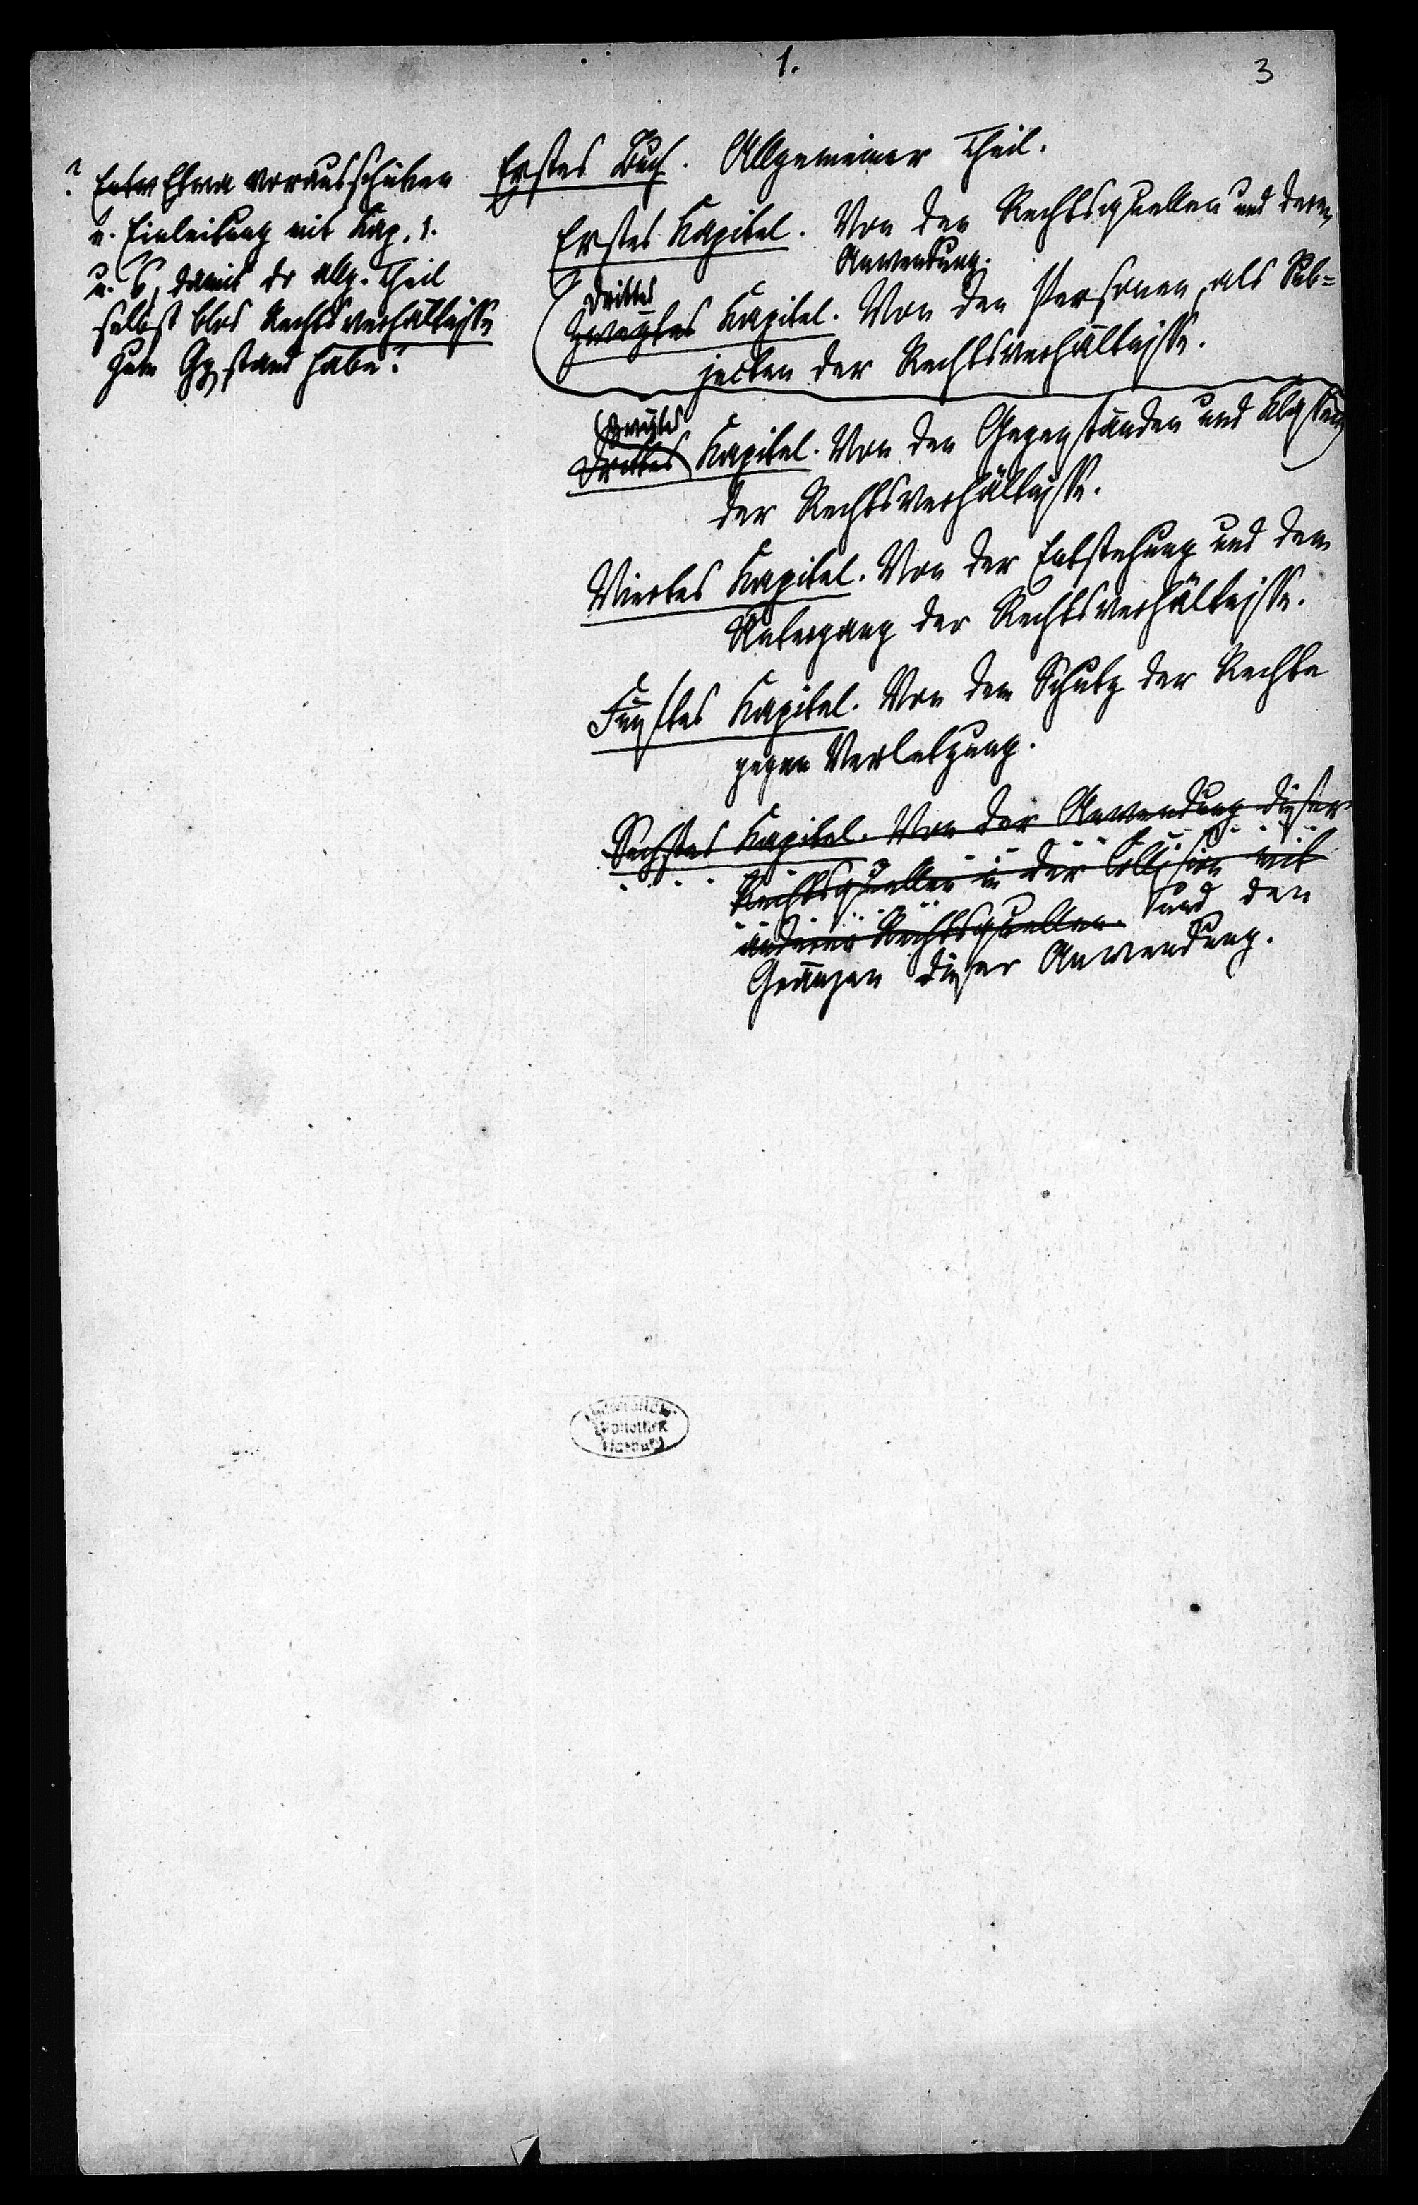 1.
3
? Entw Etwa vorausschicken
e. Einleitung mit Kap. 1.
u. 6, damit dr allg. Theil
selbst blos Rechtsverhältnisse
zum Ggstand habe?
Erstes Buch. Allgemeiner Theil.
Erstes Kapitel. Von den Rechtsquellen und deren
Anwendung.
drittes
Zweytes Kapitel. Von den Personen, als Sub=
jecten der Rechtsverhältnisse.
zweytes
Drittes Kapitel. Von den Gegenständen und
der Rechtsverhältnisse.
Viertes Kapitel. Von der Entstehung und dem
Untergang der Rechtsverhältnisse.
Fünftes Kapitel. Von dem Schutz der Rechte
gegen Verletzung.
Sechstes Kapitel. Von der Anwendung dieser
Rechtsquellen in der Collision mit
anderen Rechtsquellen. und den
Gränzen dieser Anwendung.
Bibliothek
Marburg